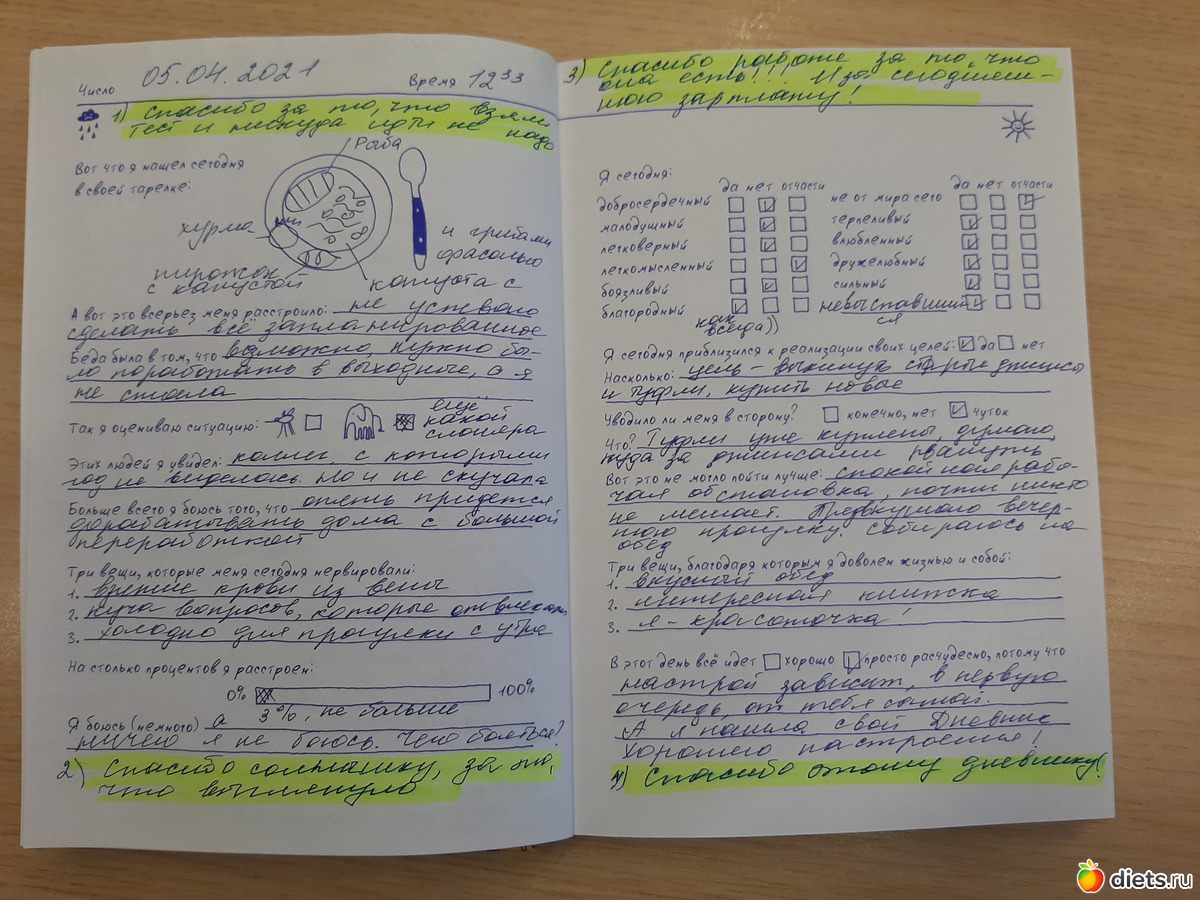 Число 05.04.2021 Время 12 33
1) Спасибо за то, что взяли
тест и никуда идти не надо
Вот что я нашел сегодня
в своей тарелке:
Рыба
хурма
пирожок
с капустой
капуста с
и грибами
фасолью
А вот это всерьез меня расстроило: не успела
сделать всё запланированное
Беда была в том, что возможно, нужно бы-
ло поработать в выходные, а я
не стала
Так я оцениваю ситуацию:
ещё
какой
слоняра
Этих людей я увидел: коллег, с которыми
год не виделась. Но и не скучала
Больше всего я боюсь того, что опять придется
дорабатывать дома с большой
переработкой
Три вещи, которые меня сегодня нервировали:
1. взятие крови из вены
2. куча вопросов, которые отвлекали
3. холодно для прогулки с утра
На столько процентов я расстроен:
0% 100%
3%, не больше
Я боюсь (немного) а
ничего я не боюсь. Чего бояться?
2) Спасибо солнышку, за то,
что выглянуло
3) Спасибо работе за то, что
она есть!!! И за сегодняш-
нюю зарплату!
Я сегодня:
да нет отчасти
добросердечный
малодушный
легковерный
легкомысленный
боязливый
благородный
как
всегда))
да нет отчасти
не от мира сего
терпеливый
влюбленный
дружелюбный
сильный
невыспавший
ся
Я сегодня приблизился к реализации своих целей: да нет
Насколько: цель - выкинуть старые джинсы
и туфли, купить новые
Уводило ли меня в сторону? конечно, нет чуток
Что? Туфли уже куплены, думаю,
куда за джинсами рвануть
Вот это не могло пойти лучше: спокойная рабо-
чая обстановка, почти никто
не мешает. Предвкушаю вечер-
нюю прогулку. Собираюсь на
обед
Три вещи, благодаря которым я доволен жизнью и собой:
1. вкусный обед
2. интересная книжка
3. я - красоточка!
В этот день всё идет хорошо просто расчудесно, потому что
настрой зависит, в первую
очередь, от тебя самой.
А я нашла свой Дневник
хорошего настроения!
4) Спасибо этому дневнику!
diets.ru